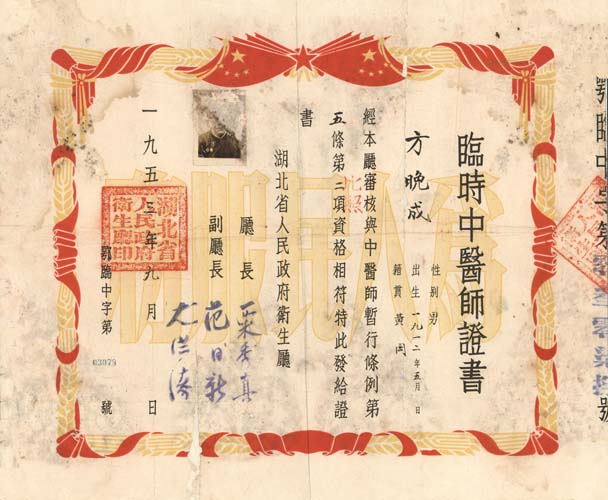 鄂臨中字第
號
臨時中醫師證書
方晚成
性別 男
出生 一九一二年五月 日
籍貫 黄岡
比照
經本廳審核與中醫師暫行條例第
五條第二項資格相符特此發給證
書
湖北省人民政府衛生廳
廳長 栗秀真
副廳長 范日新
一九五三年九月 日
湖北省
人民政府
衛生廳印
鄂臨中字第 03079 號
為人民服務